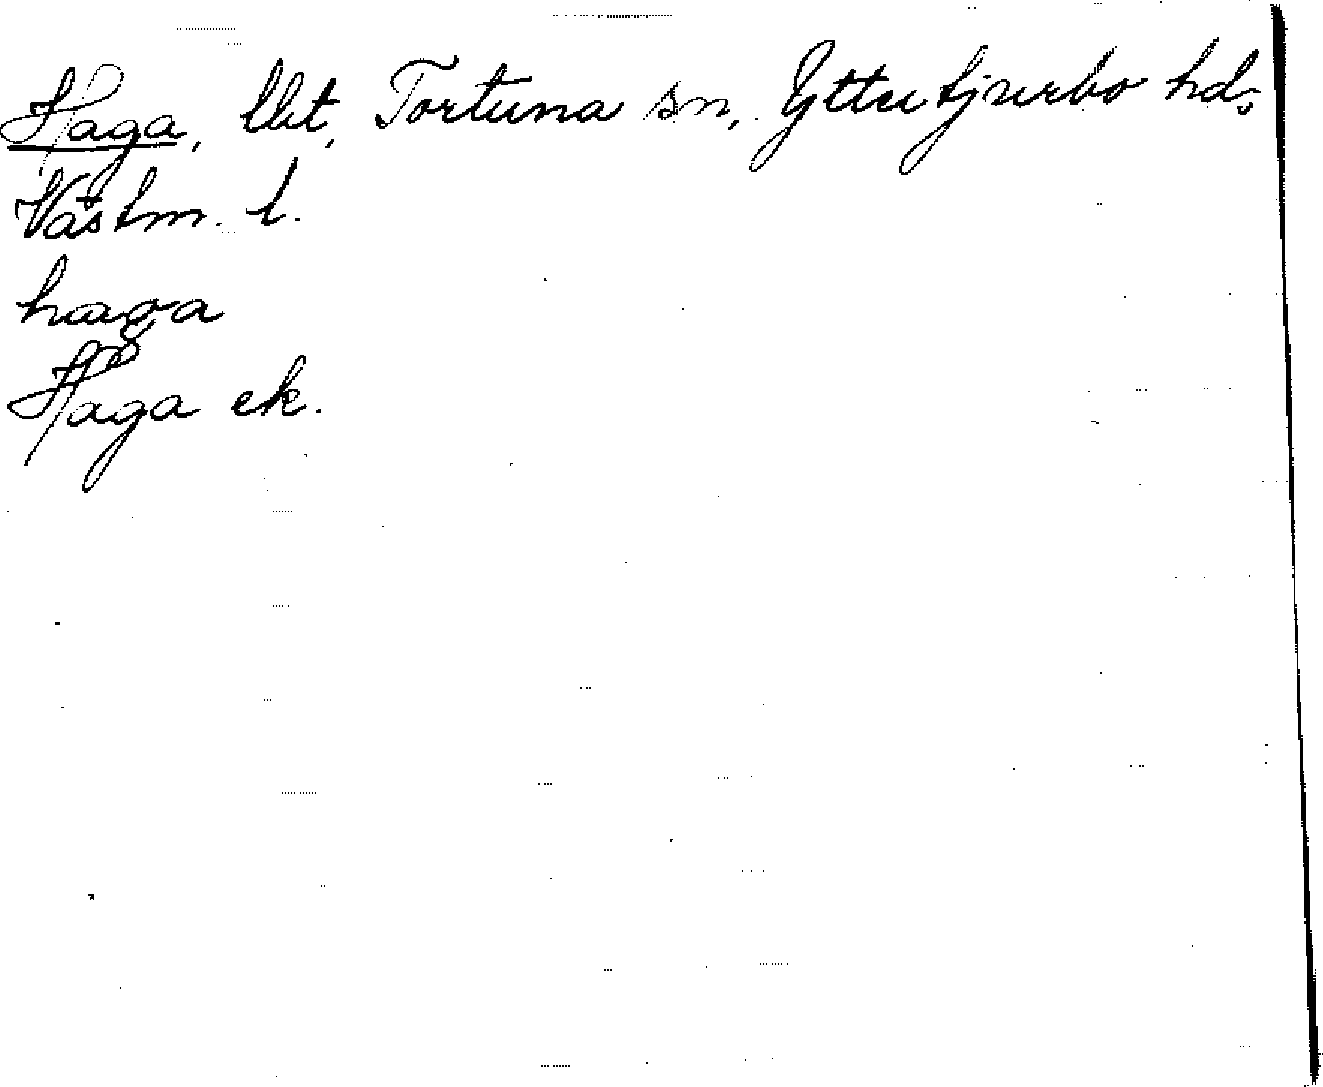 Haga, lbt, Tortuna sn, Yttertjurbo hd,
Västm. l.
haga
Haga ek.